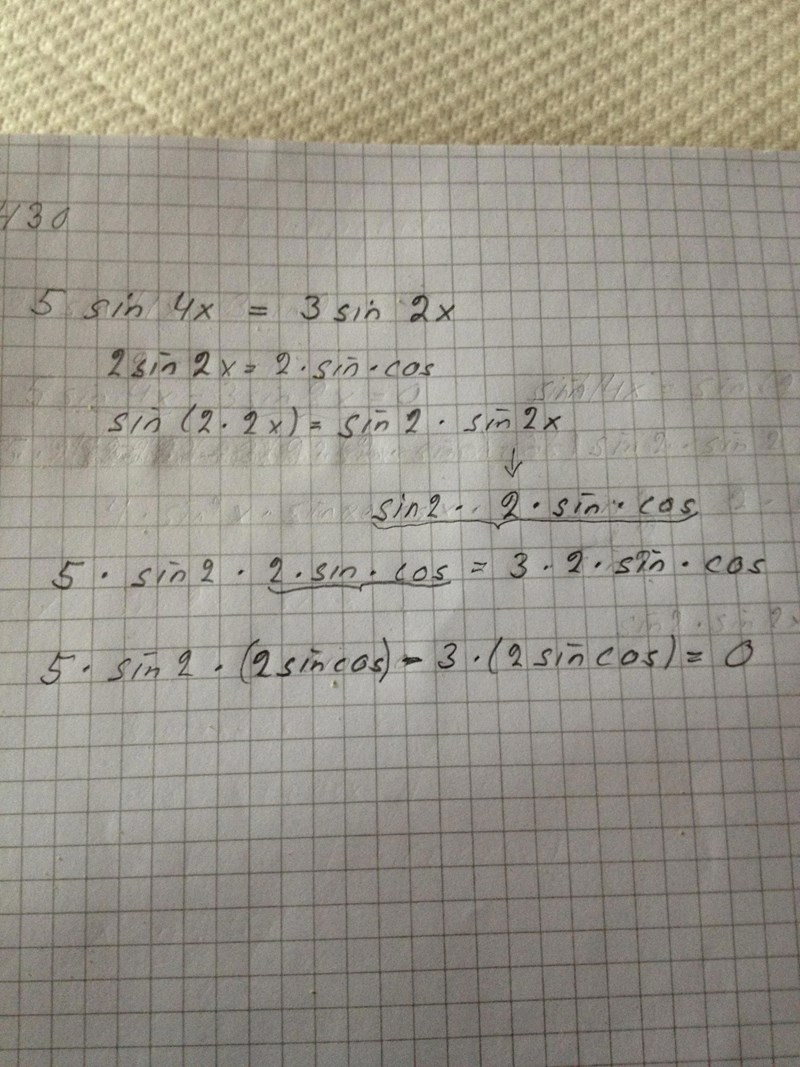 430
5 sin 4x = 3 sin 2x
2sin 2x = 2·sin·cos
sin (2·2x) = sin 2 · sin 2x
↓
sin2·· 2·sin·cos
5 · sin 2 · 2·sin·cos = 3·2·sin·cos
5 · sin 2 · (2sincos) - 3 ·(2sincos) = 0